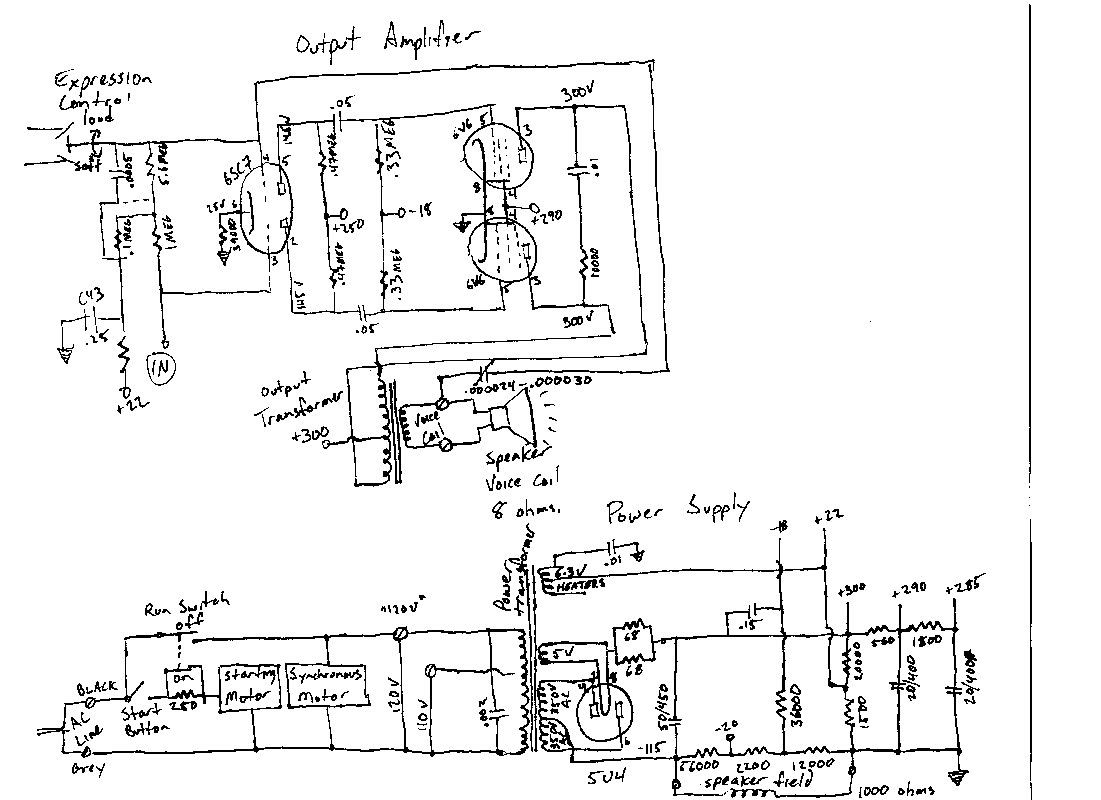 Output Amplifier
Expression
Control
loud
soft
.0005
5.6 MEG
.1 MEG
1 MEG
C43
.25
+22
IN
6SC7
25V
6
3900
4
5
2
3
145V
145V
.05
.47MEG
.47MEG
+250
.33MEG
.33MEG
-18
.05
6V6
5
3
8
4
8
4
+290
6V6
5
3
300V
.01
10000
300V
Output
Transformer
+300
.000024-.000030
Voice
Coil
Speaker
Voice Coil
8 ohms.
Power Supply
Power
transformer
6.3V
HEATERS
.01
-18
+22
+300
+290
+285
Run Switch
off
on
"120V"
BLACK
AC
Line
Grey
Start
Button
250
Starting
Motor
Synchronous
Motor
120V
110V
.002
5V
350V
AC
350V
AC
68
68
4
8
6
5U4
-115
50/450
.15
36000
20000
1500
560
1800
20/400
20/400
-20
56000
2200
12000
speaker field
1000 ohms